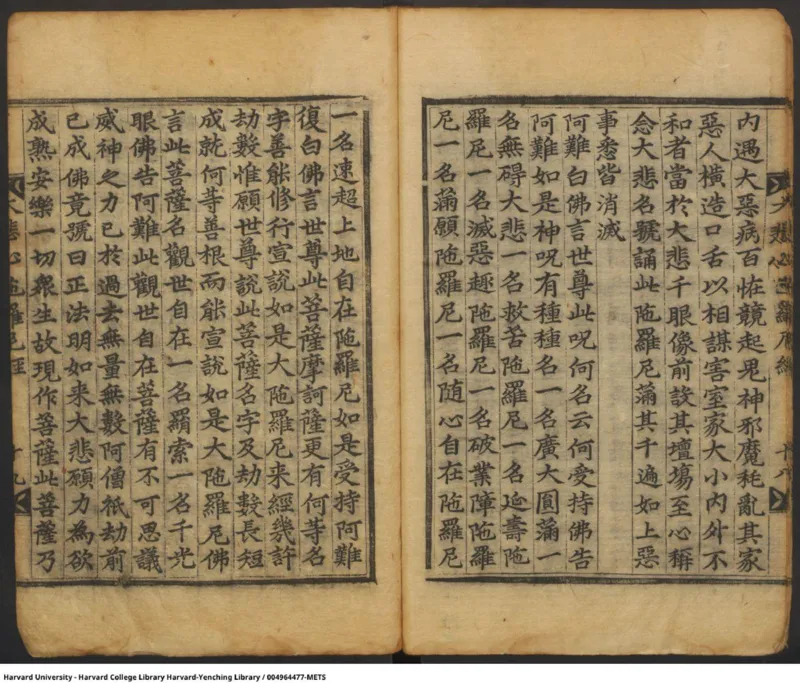 內遇大惡病百恠競起鬼神邪魔耗亂其家
惡人橫造口舌以相謀害室家大小內外不
和者當於大悲千眼像前設其壇場至心稱
念大悲名號誦此陁羅尼滿其千遍如上惡
事悉皆消滅
阿難白佛言世尊此呪何名云何受持佛告
阿難如是神呪有種種名一名廣大圓滿一
名無碍大悲一名救苦陁羅尼一名延壽陁
羅尼一名滅惡趣陁羅尼一名破業障陁羅
尼一名滿願陁羅尼一名随心自在陁羅尼
一名速超上地自在陁羅尼如是受持阿難
復白佛言世尊此菩薩摩訶薩更有何等名
字善能修行宣說如是大陁羅尼来經幾許
劫數惟願世尊說此菩薩名字及劫數長短
成就何等善根而能宣說如是大陁羅尼佛
言此菩薩名觀世自在一名羂索一名千光
眼佛告阿難此觀世自在菩薩有不可思議
威神之力已於過去無量無數阿僧祇劫前
已成佛竟號曰正法明如来大悲願力為欲
成熟安樂一切衆生故現作菩薩此菩薩乃
大悲心陁羅尼経
十九
Harvard University - Harvard College Library Harvard-Yenching Library / 004964477-METS